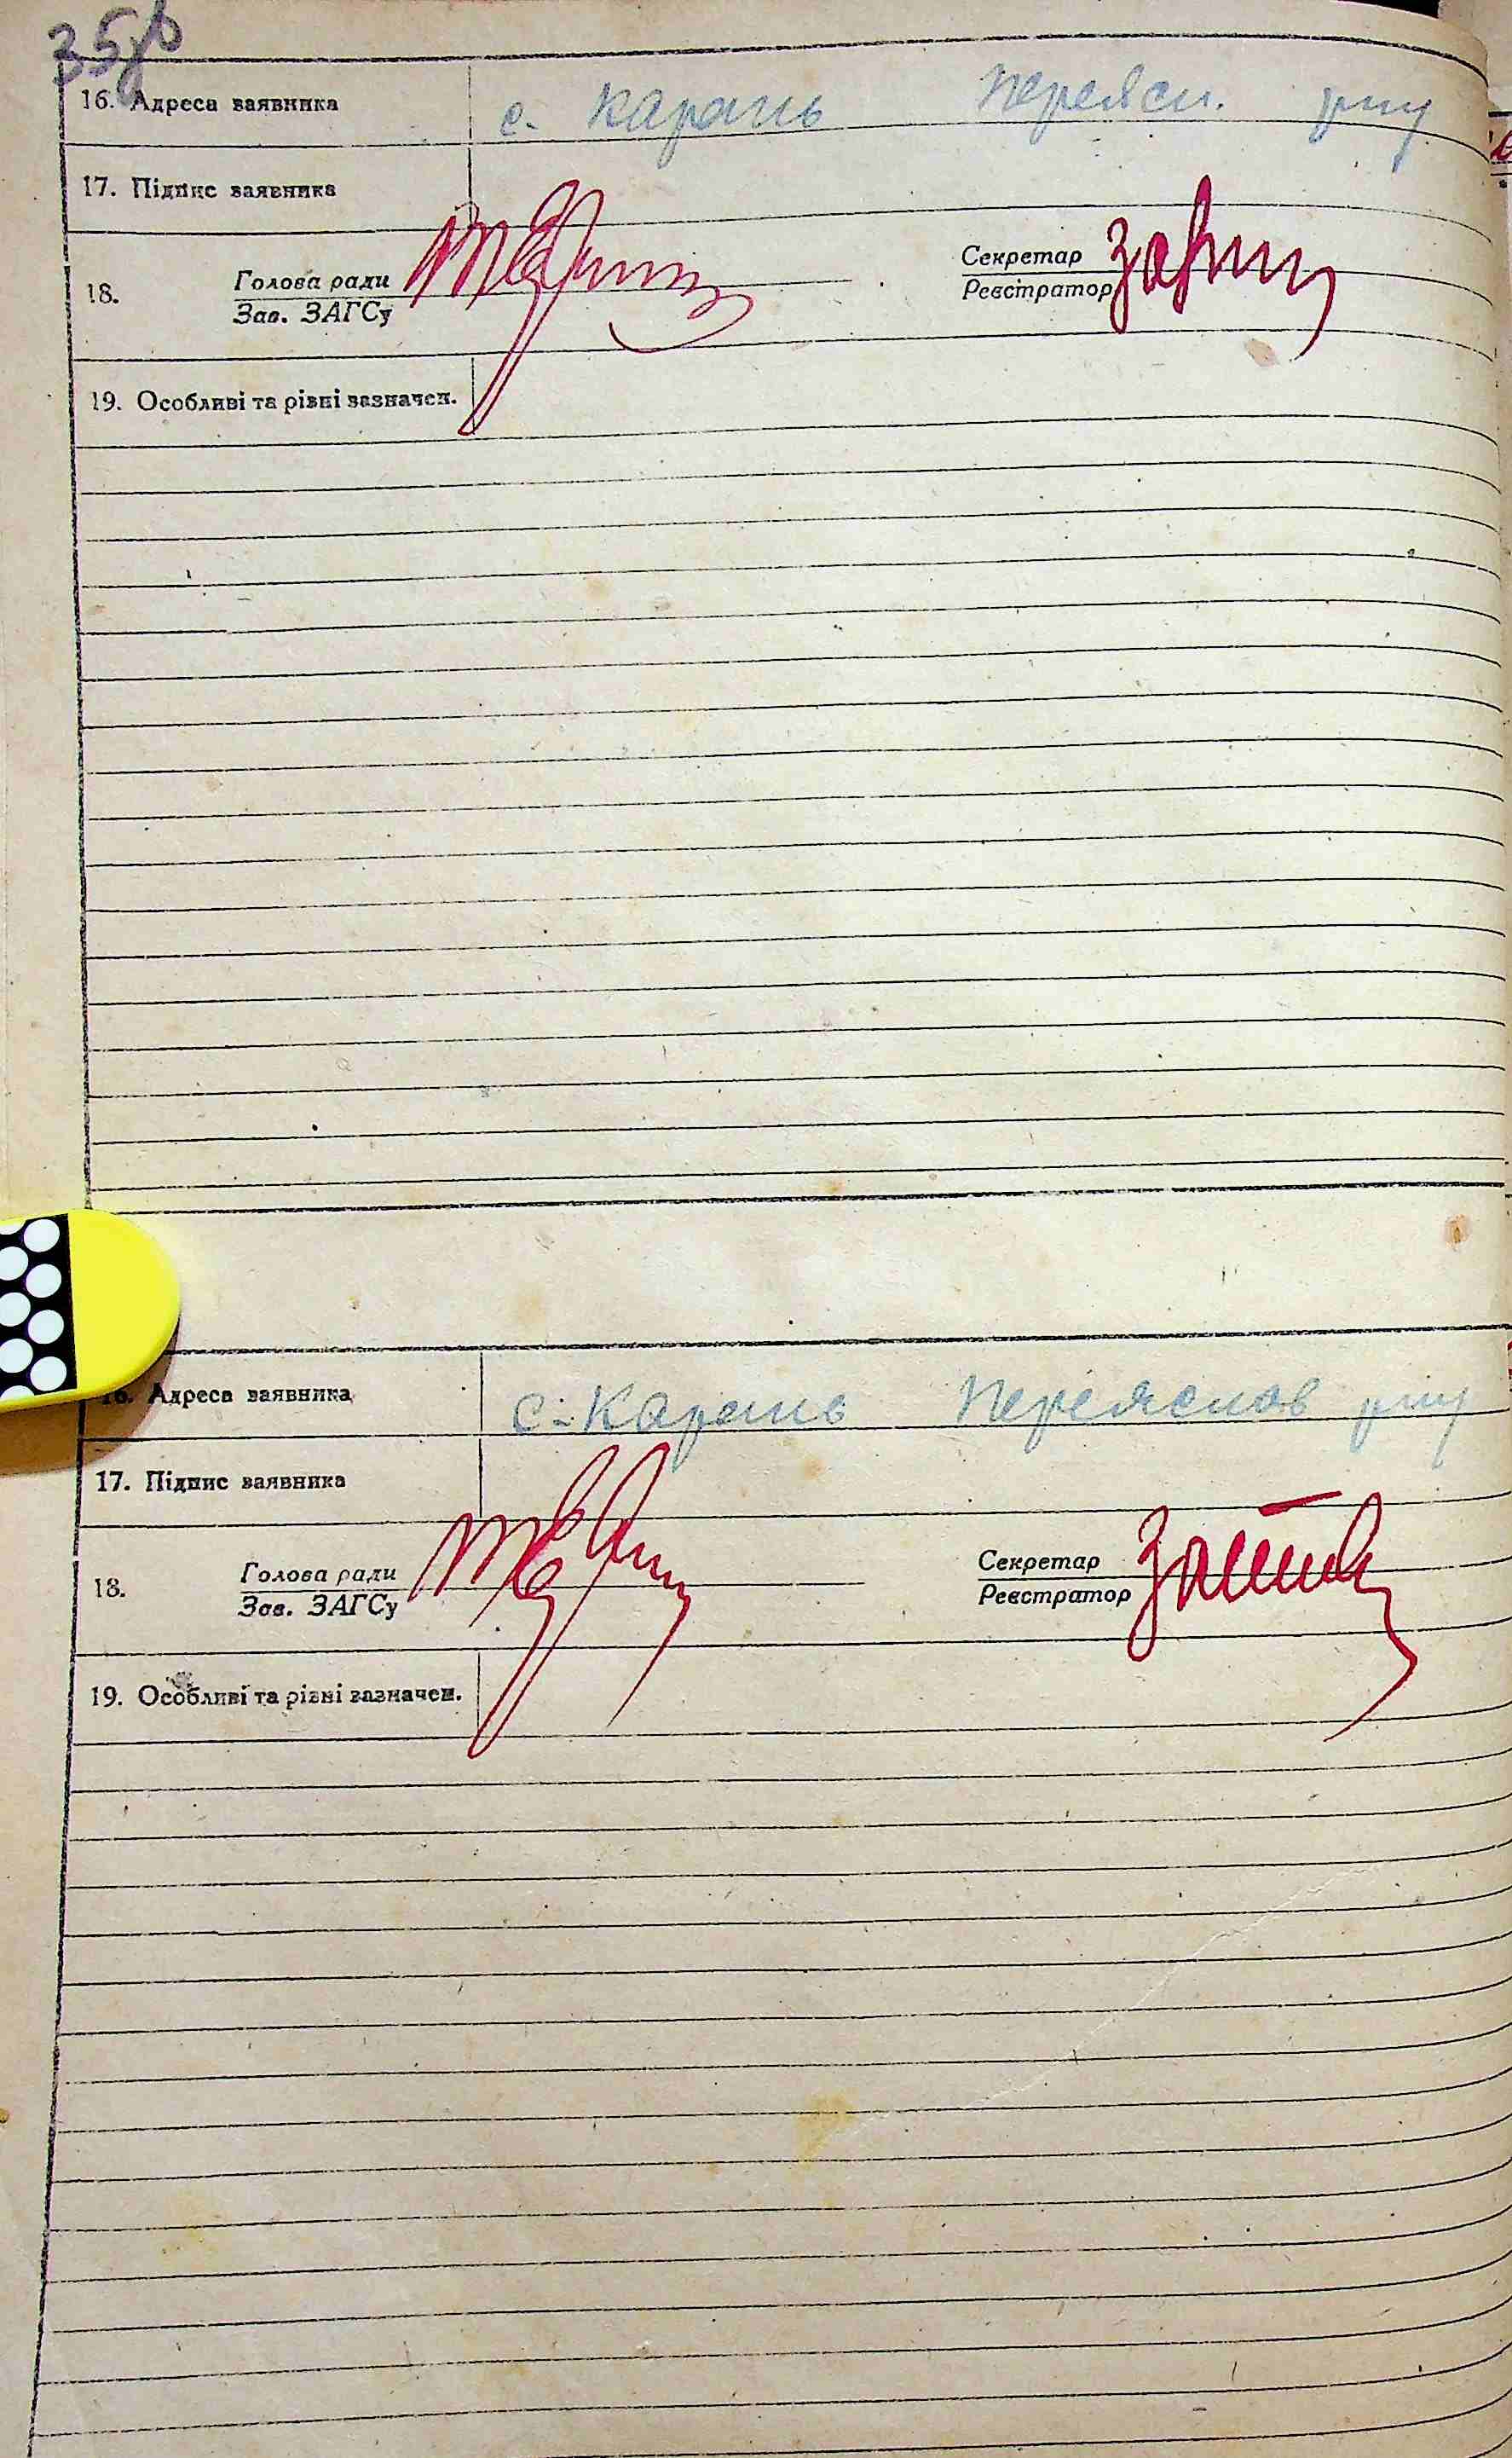 35зв
16. Адреса заявника с. Карань Переясл. р-ну
17. Підпис заявника
Голова ради Секретар
18.
Зав. ЗАГСу Реєстратор
19. Особливі та різні зазначен.
16. Адреса заявника с. Карань Переяслав р-ну
17. Підпис заявника
Голова ради Секретар
18.
Зав. ЗАГСу Реєстратор
19. Особливі та різні зазначен.